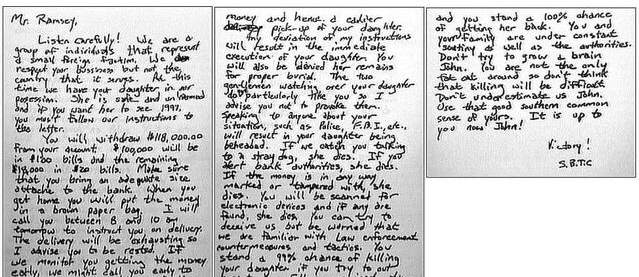 Mr. Ramsey,
Listen Carefully! We are a
group of individuals that represent
a small foreign faction. We do
respect your bussiness but not the
country that it serves. At this
time we have your daughter in our
posession. She is safe and unharmed
and if you want her to see 1997,
you must follow our instructions to
the letter.
You will withdraw $118,000.00
from your account. $100,000 will be
in $100 bills and the remaining
$18,000 in $20 bills. Make sure
that you bring an adequate size
attache to the bank. When you
get home you will put the money
in a brown paper bag. I will
call you between 8 and 10 am
tomorrow to instruct you on delivery.
The delivery will be exhausting so
I advise you to be rested. If
we monitor you getting the money
early, we might call you early to
money and hence a earlier
pick-up of your daughter.
Any deviation of my instructions
will result in the immediate
execution of your daughter. You
will also be denied her remains
for proper burial. The two
gentlemen watching over your daughter
do not particularly like you so I
advise you not to provoke them.
Speaking to anyone about your
situation, such as Police, F.B.I., etc.,
will result in your daughter being
beheaded. If we catch you talking
to a stray dog, she dies. If you
alert bank authorities, she dies.
If the money is in any way
marked or tampered with, she
dies. You will be scanned for
electronic devices and if any are
found, she dies. You can try to
deceive us but be warned that
we are familiar with Law enforcement
countermeasures and tactics. You
stand a 99% chance of killing
your daughter if you try to out
and you stand a 100% chance
of getting her back. You and
your family are under constant
scrutiny as well as the authorities.
Don't try to grow a brain
John. You are not the only
fat cat around so don't think
that killing will be difficult.
Don't underestimate us John.
Use that good southern common
sense of yours. It is up to
you now John!
Victory!
S.B.T.C